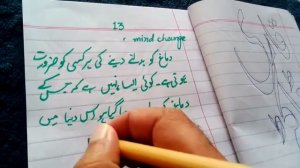 13
mind change
دماغ کو بدلنے دینے کی ہر کسی کو ضرورت
ہوتی ہے۔ کوئی ایسا نہیں ہے کہ جس کے
دماغ گیا ہو کس دنیا میں